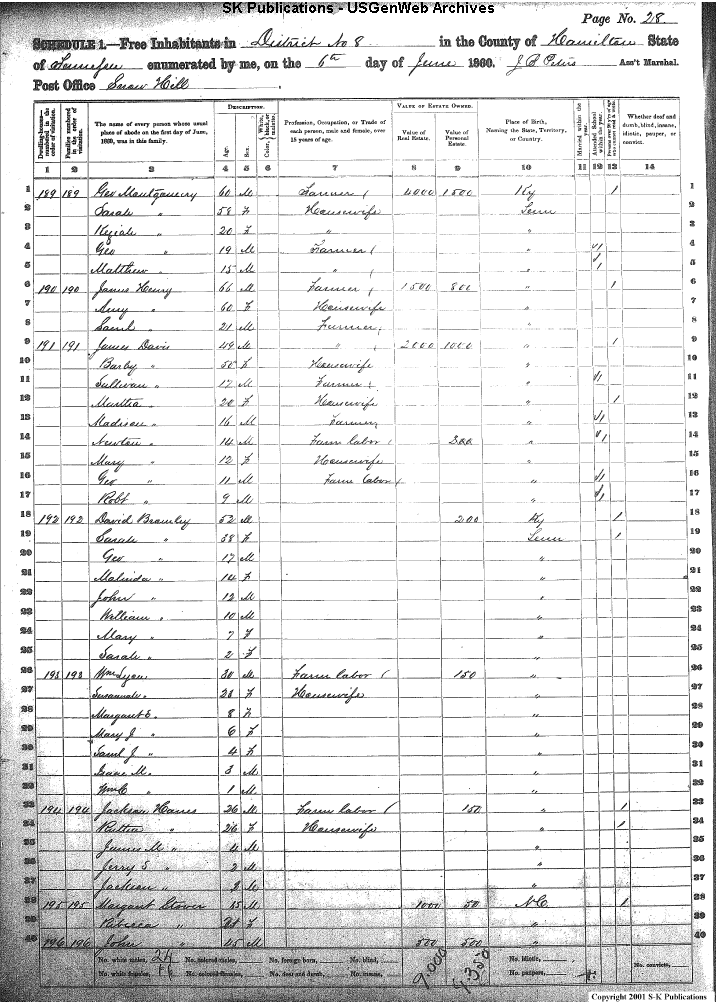 SK Publications - USGenWeb Archives
Page No. 28
SCHEDULE 1.—Free Inhabitants in District No 8 in the County of Hamilton State
of Tennessee enumerated by me, on the 6th day of June 1860. Ass't Marshal.
Post Office Snow Hill
Dwelling-houses— numbered in the order of visitation.
Families numbered in the order of visitation.
The name of every person whose usual place of abode on the first day of June, 1860, was in this family.
DESCRIPTION.
Age.
Sex.
Color, White, black, or mulatto.
Profession, Occupation, or Trade of each person, male and female, over 15 years of age.
VALUE OF ESTATE OWNED.
Value of Real Estate.
Value of Personal Estate.
Place of Birth, Naming the State, Territory, or Country.
Married within the year.
Attended School within the year.
Whether deaf and dumb, blind, insane, idiotic, pauper, or convict.
1 2 3 4 5 6 7 8 9 10 11 12 13 14
1 189 189 Geo Montgomery 60 M Farmer 4000 1500 Ky 1 1
2 Sarah " 58 F Housewife Tenn 2
3 Keziah " 20 F " " 3
4 Geo " 19 M Farmer " 1 4
5 Matthew " 15 M " " 1 5
6 190 190 James Henry 66 M Farmer 1500 800 " 1 6
7 Amy " 60 F Housewife " 7
8 Saml " 21 M Farmer " 8
9 191 191 James Davis 49 M " 2000 1000 " 1 9
10 Barby " 50 F Housewife " 10
11 Sullivan " 17 M Farmer " 1 11
12 Martha " 20 F Housewife " 1 12
13 Madison " 16 M Farmer " 1 13
14 Newton " 14 M Farm labor 300 " 1 14
15 Mary " 12 F Housewife " 15
16 Geo " 11 M Farm labor " 1 16
17 Robt " 9 M " 1 17
18 192 192 David Bramley 52 M 200 Ky 1 18
19 Sarah " 38 F Tenn 1 19
20 Geo " 17 M " 20
21 Malinda " 14 F " 21
22 John " 12 M " 22
23 William " 10 M " 23
24 Mary " 7 F " 24
25 Sarah " 2 F " 25
26 193 193 Wm Lyon 30 M Farm labor 150 " 26
27 Susannah " 28 F Housewife " 27
28 Margaret E. 8 F " 28
29 Mary J " 6 F " 29
30 Saml J " 4 F " 30
31 Isaac M. " 3 M " 31
32 Wm C " 1 M " 32
33 194 194 Jackson Hanes 26 M Farm labor 150 " 1 33
34 " 26 F Housewife " 1 34
35 James M " 4 M " 35
36 Jerry S " 2 M " 36
37 Jackson " 2 M " 37
38 195 195 Margaret Stover 1000 50 N.C. 1 38
39 Rebecca " F " 39
40 196 196 John " 45 M 500 500 " 40
No. white males, 24 No. colored males, No. foreign born, No. blind, 9,000 4,350 No. idiotic, No. convicts,
No. white females, 16 No. colored females, No. deaf and dumb, No. insane, No. paupers,
Copyright 2001 S-K Publications